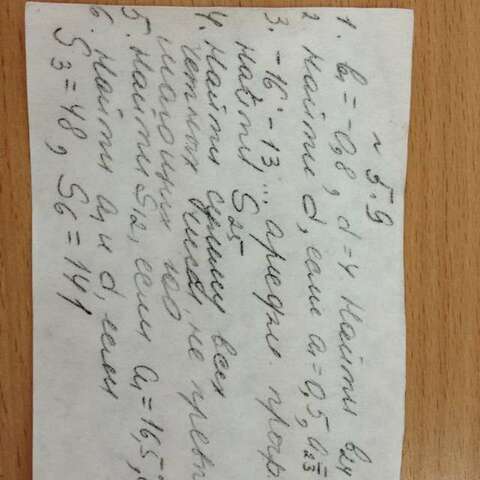 № 5.9
1. b₁ = -0,8, d = 4 Найти b₂₄
2 Найти d, если a₁ = 0,5, a₂₃ =
3. -16; -13 ... арифм. прогр
Найти S₂₅
4. Найти сумму всех
четных чисел, не превы
шающих
5. Найти S₁₂, если a₁ = 16,5,
6. Найти a₁ и d, если
S₃ = 48, S₆ = 141